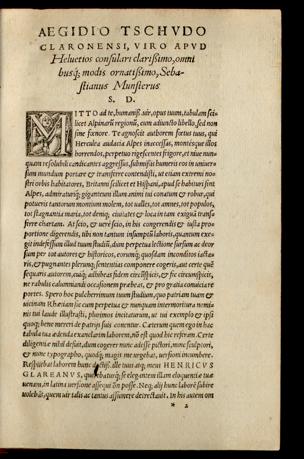 AEGIDIO TSCHVDO
CLARONENSI, VIRO APVD
Heluetios consulari clarißimo, omni
busq; modis ornatißimo, Seba-
stianus Munsterus
S. D.
MITTO ad te, humaniß. uir, opus tuum, tabulam sci-
licet Alpinarũ regionũ, cum adiuncto libello, sed non
sine fœnore. Te agnoscit authorem fœtus tuus, qui
Herculea audacia Alpes inaccessas, montesque illos
horrendos, perpetuo rigescentes frigore, et niue nun-
quam resolubili candicantes aggressus, submissis humeris eos in uniuer
sum mundum portare & transferre contendisti, ut etiam extremi no-
stri orbis habitatores, Britanni scilicet et Hispani, apud se habituri sint
Alpes, admiraturiq; giganteum illum animi tui conatum & robur, qui
potueris tantorum montium molem, tot ualles, tot amnes, tot populos,
tot stagnantia maria, tot deniq; ciuitates & loca in tam exiguã transfer
ferre chartam. At scio, & uerè scio, in his congerendis & iusta pro-
portione digerendis, tibi non tantum insumptũ laboris, quantum exe-
git indefessum illud tuum studiũ, dum perpetua lectione sursum ac deor
sum per tot autores & historicos, eorumq; quosdam inconditos iacta-
tus, & pugnantes plerunq; sententias componere cogeris, aut certe quẽ
sequaris autorem,
ne rabulis calumniandi occasionem præbeas, & pro gratia conuiciare
portes. Spero hoc pulcherrimum tuum studium, quo patriam tuam &
uicinam Rhætiam sic cum perpetua & nunquam intermoritura nomi-
nis tui laude illustrasti, plurimos incitaturum, ut tuo exemplo & ipsi
quoq; bene mereri de patrijs suis conentur. Cæterum quem ego in hac
tabula tua ædenda exanclarim laborem, nõ est quod hic referam. Certe
diligentiæ nihil defuit, dum cogerer nunc adesse pictori, nunc sculptori,
& nunc typographo, quodq; magis me urgebat, uersioni incumbere.
Respuebat laborem hunc doctiß. ille tuus atq; meus HENRICVS
GLAREANVS, quòd se elegantem illam eloquentiæ tuæ
uenam, in latina uersione assequi nõ posse. Neq; alij hunc laborẽ subire
uolebãt, quem uir talis ac tantus assumere detrectauit. In his autem om
* 2